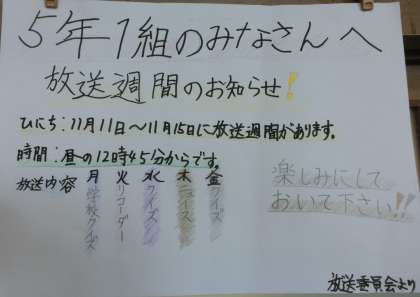 5年1組のみなさんへ
放送週間のお知らせ!
ひにち:11月11日〜11月15日に放送週間があります。
時間:昼の12時45分からです。
放送内容 月 火 水 木 金
学校クイズ
リコーダー
クイズ
クイズ
楽しみにして
おいて下さい!!
放送委員会より